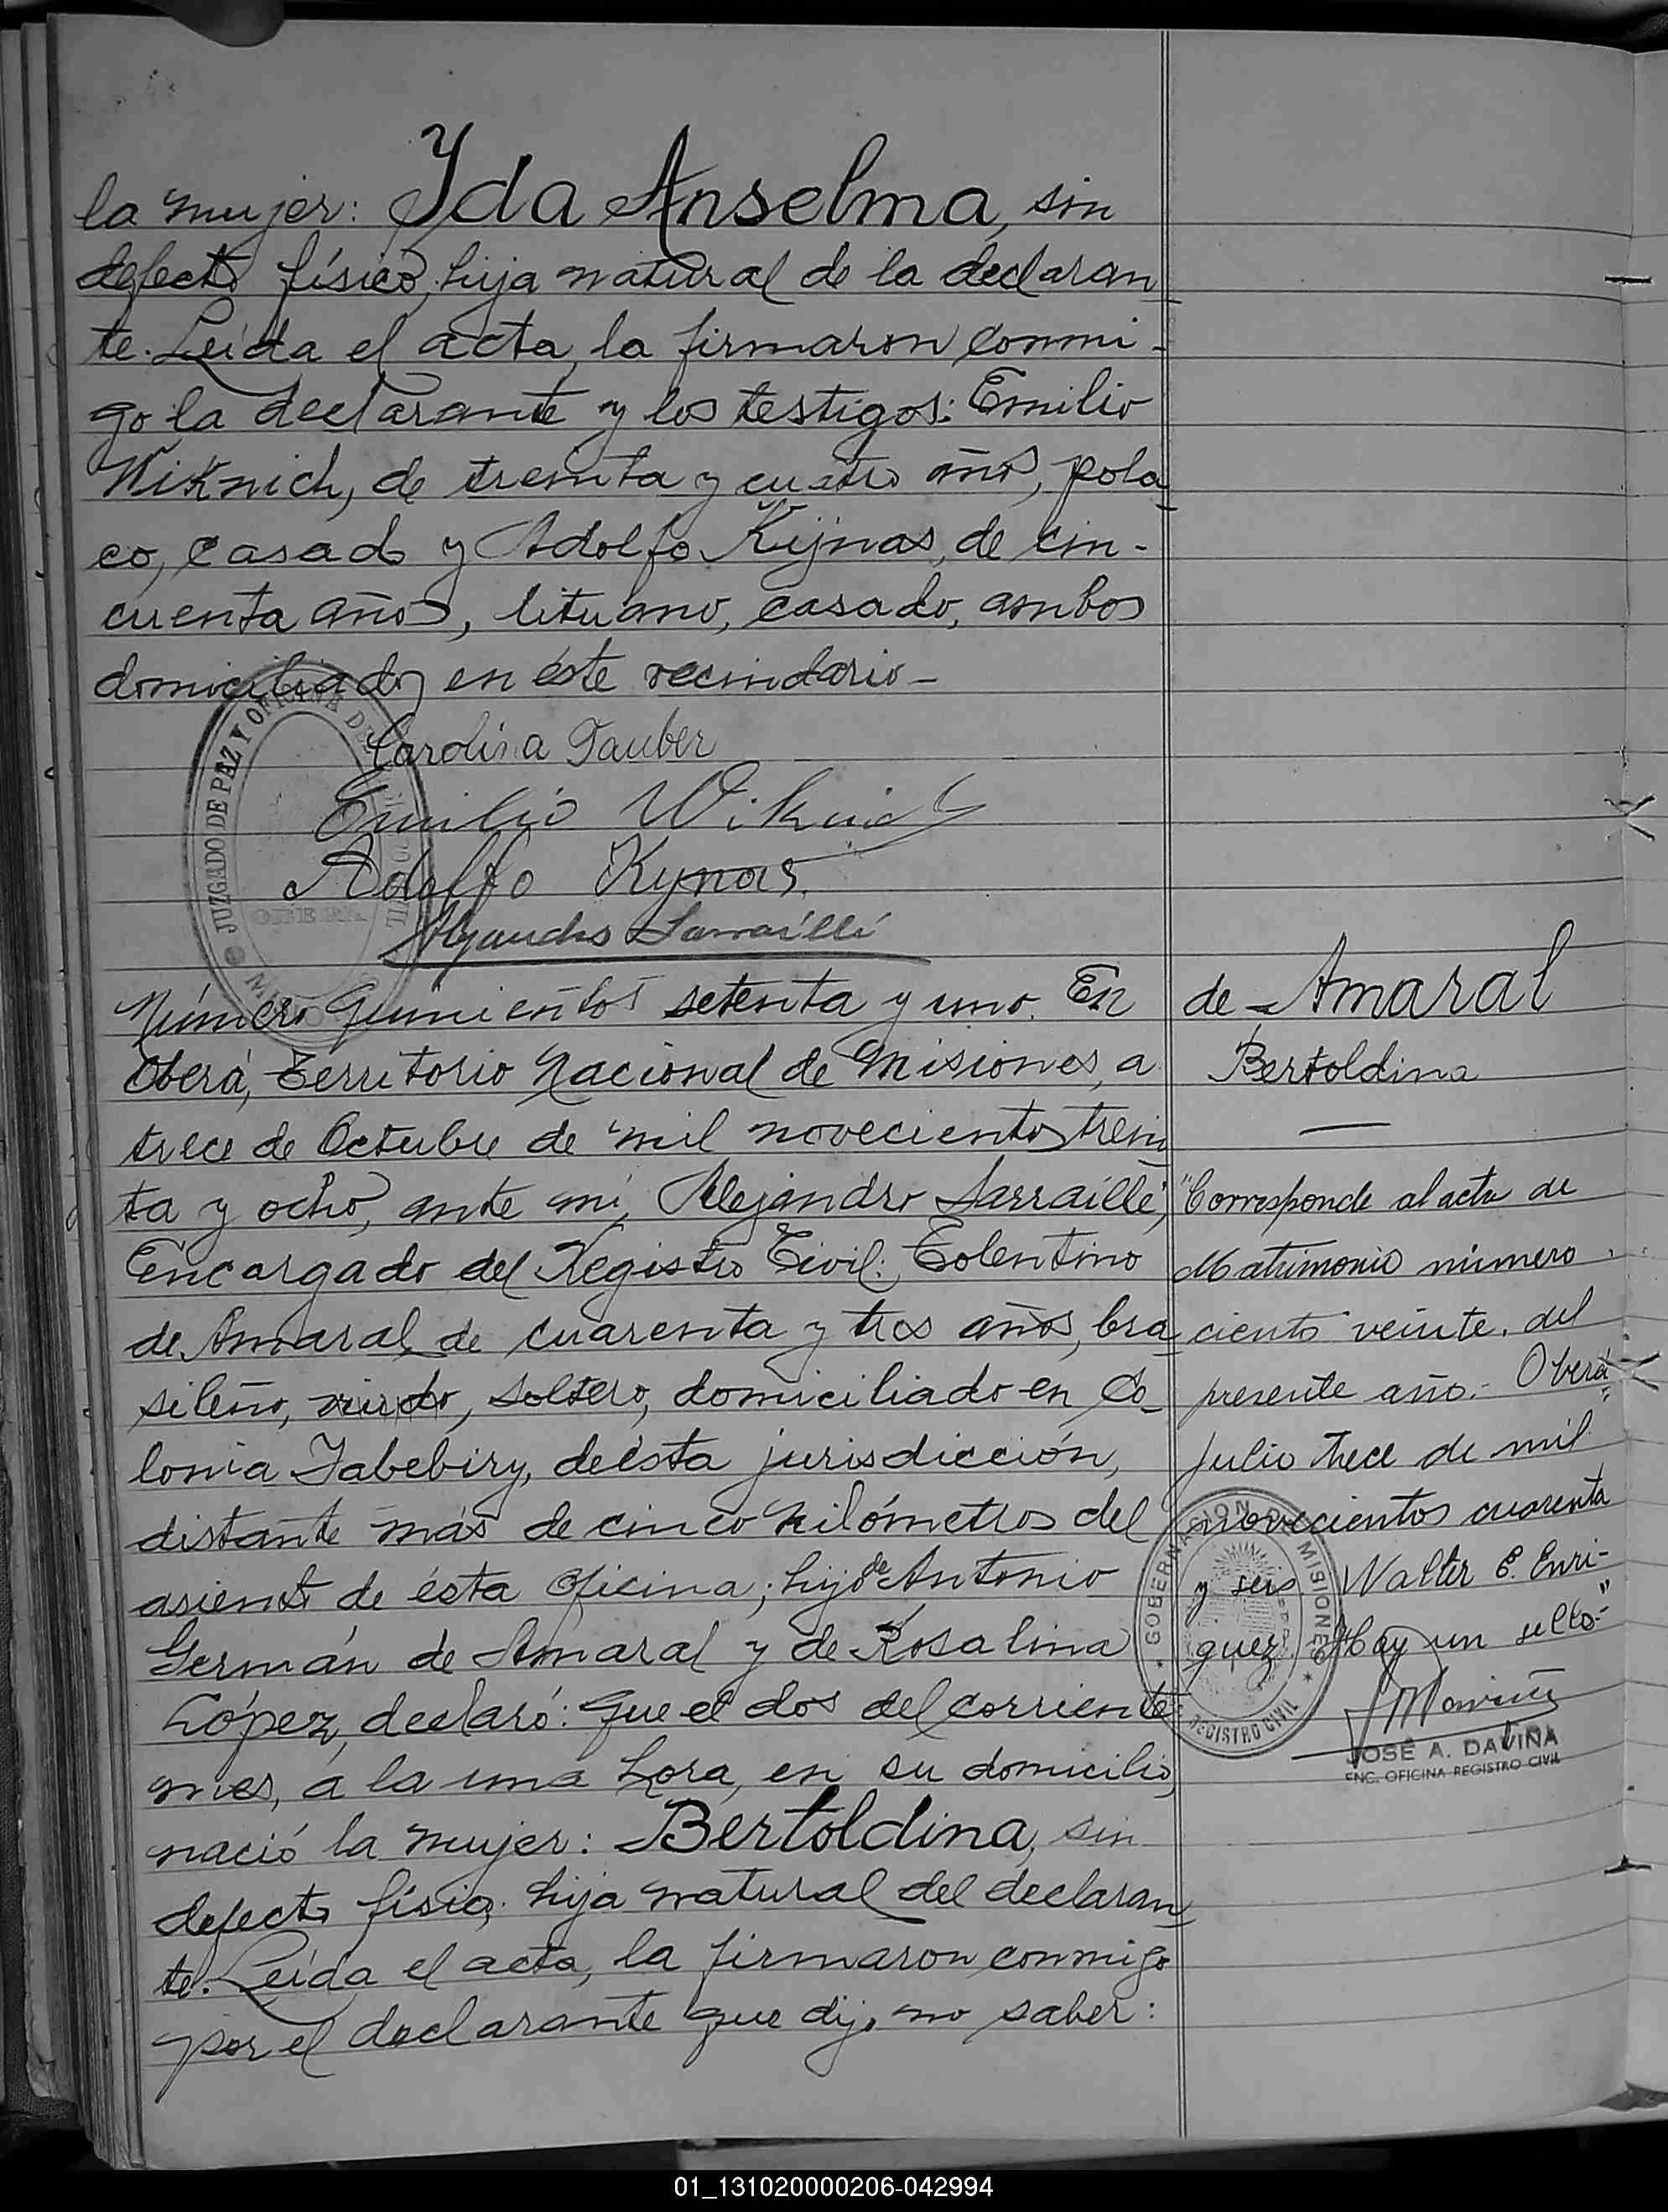 la mujer: Yda Anselma, sin
defecto físico, hija natural de la declaran
te. Leída el acta, la firmaron conmi-
go la declarante y los testigos: Emilio
Wiknich, de treinta y cuatro años, pola
co, casado y Adolfo Kijnas, de cin-
cuenta años, lituano, casado, ambos
domiciliados en éste vecindario-
JUZGADO DE PAZ Y OFICINA DEL
OBERA
Carolina Tauber
Emilio Wiknich
Adolfo Kynas.
Alejandro Sarraillé
Número quinientos setenta y uno. En
Oberá, Territorio Nacional de Misiones, a
trece de Octubre de mil novecientos trein
ta y ocho, ante mí, Alejandro Sarraillé,
Encargado del Registro Civil: Tolentino
de Amaral, de cuarenta y tres años, bra
sileño, viudo, soltero, domiciliado en Co-
lonia Yabebiry, de ésta jurisdicción,
distante más de cinco kilómetros del
asiento de ésta oficina; hijo de Antonio
Germán de Amaral y de Rosalina
López, declaró: que el dos del corriente
mes, a la una hora, en su domicilio,
nació la mujer: Bertoldina, sin
defecto físico, hija natural del declaran
te. Leída el acta, la firmaron conmigo
por el declarante que dijo no saber:
de Amaral
Bertoldina
"Corresponde al acta de
Matrimonio número
ciento veinte. del
presente año.- Oberá
Julio trece de mil
novecientos cuarenta
y seis Walter E. Enri-
quez. Hay un sello-"
GOBERNACION DE MISIONES
REGISTRO CIVIL
JOSÉ A. DAVIÑA
ENC. OFICINA REGISTRO CIVIL
01_131020000206-042994